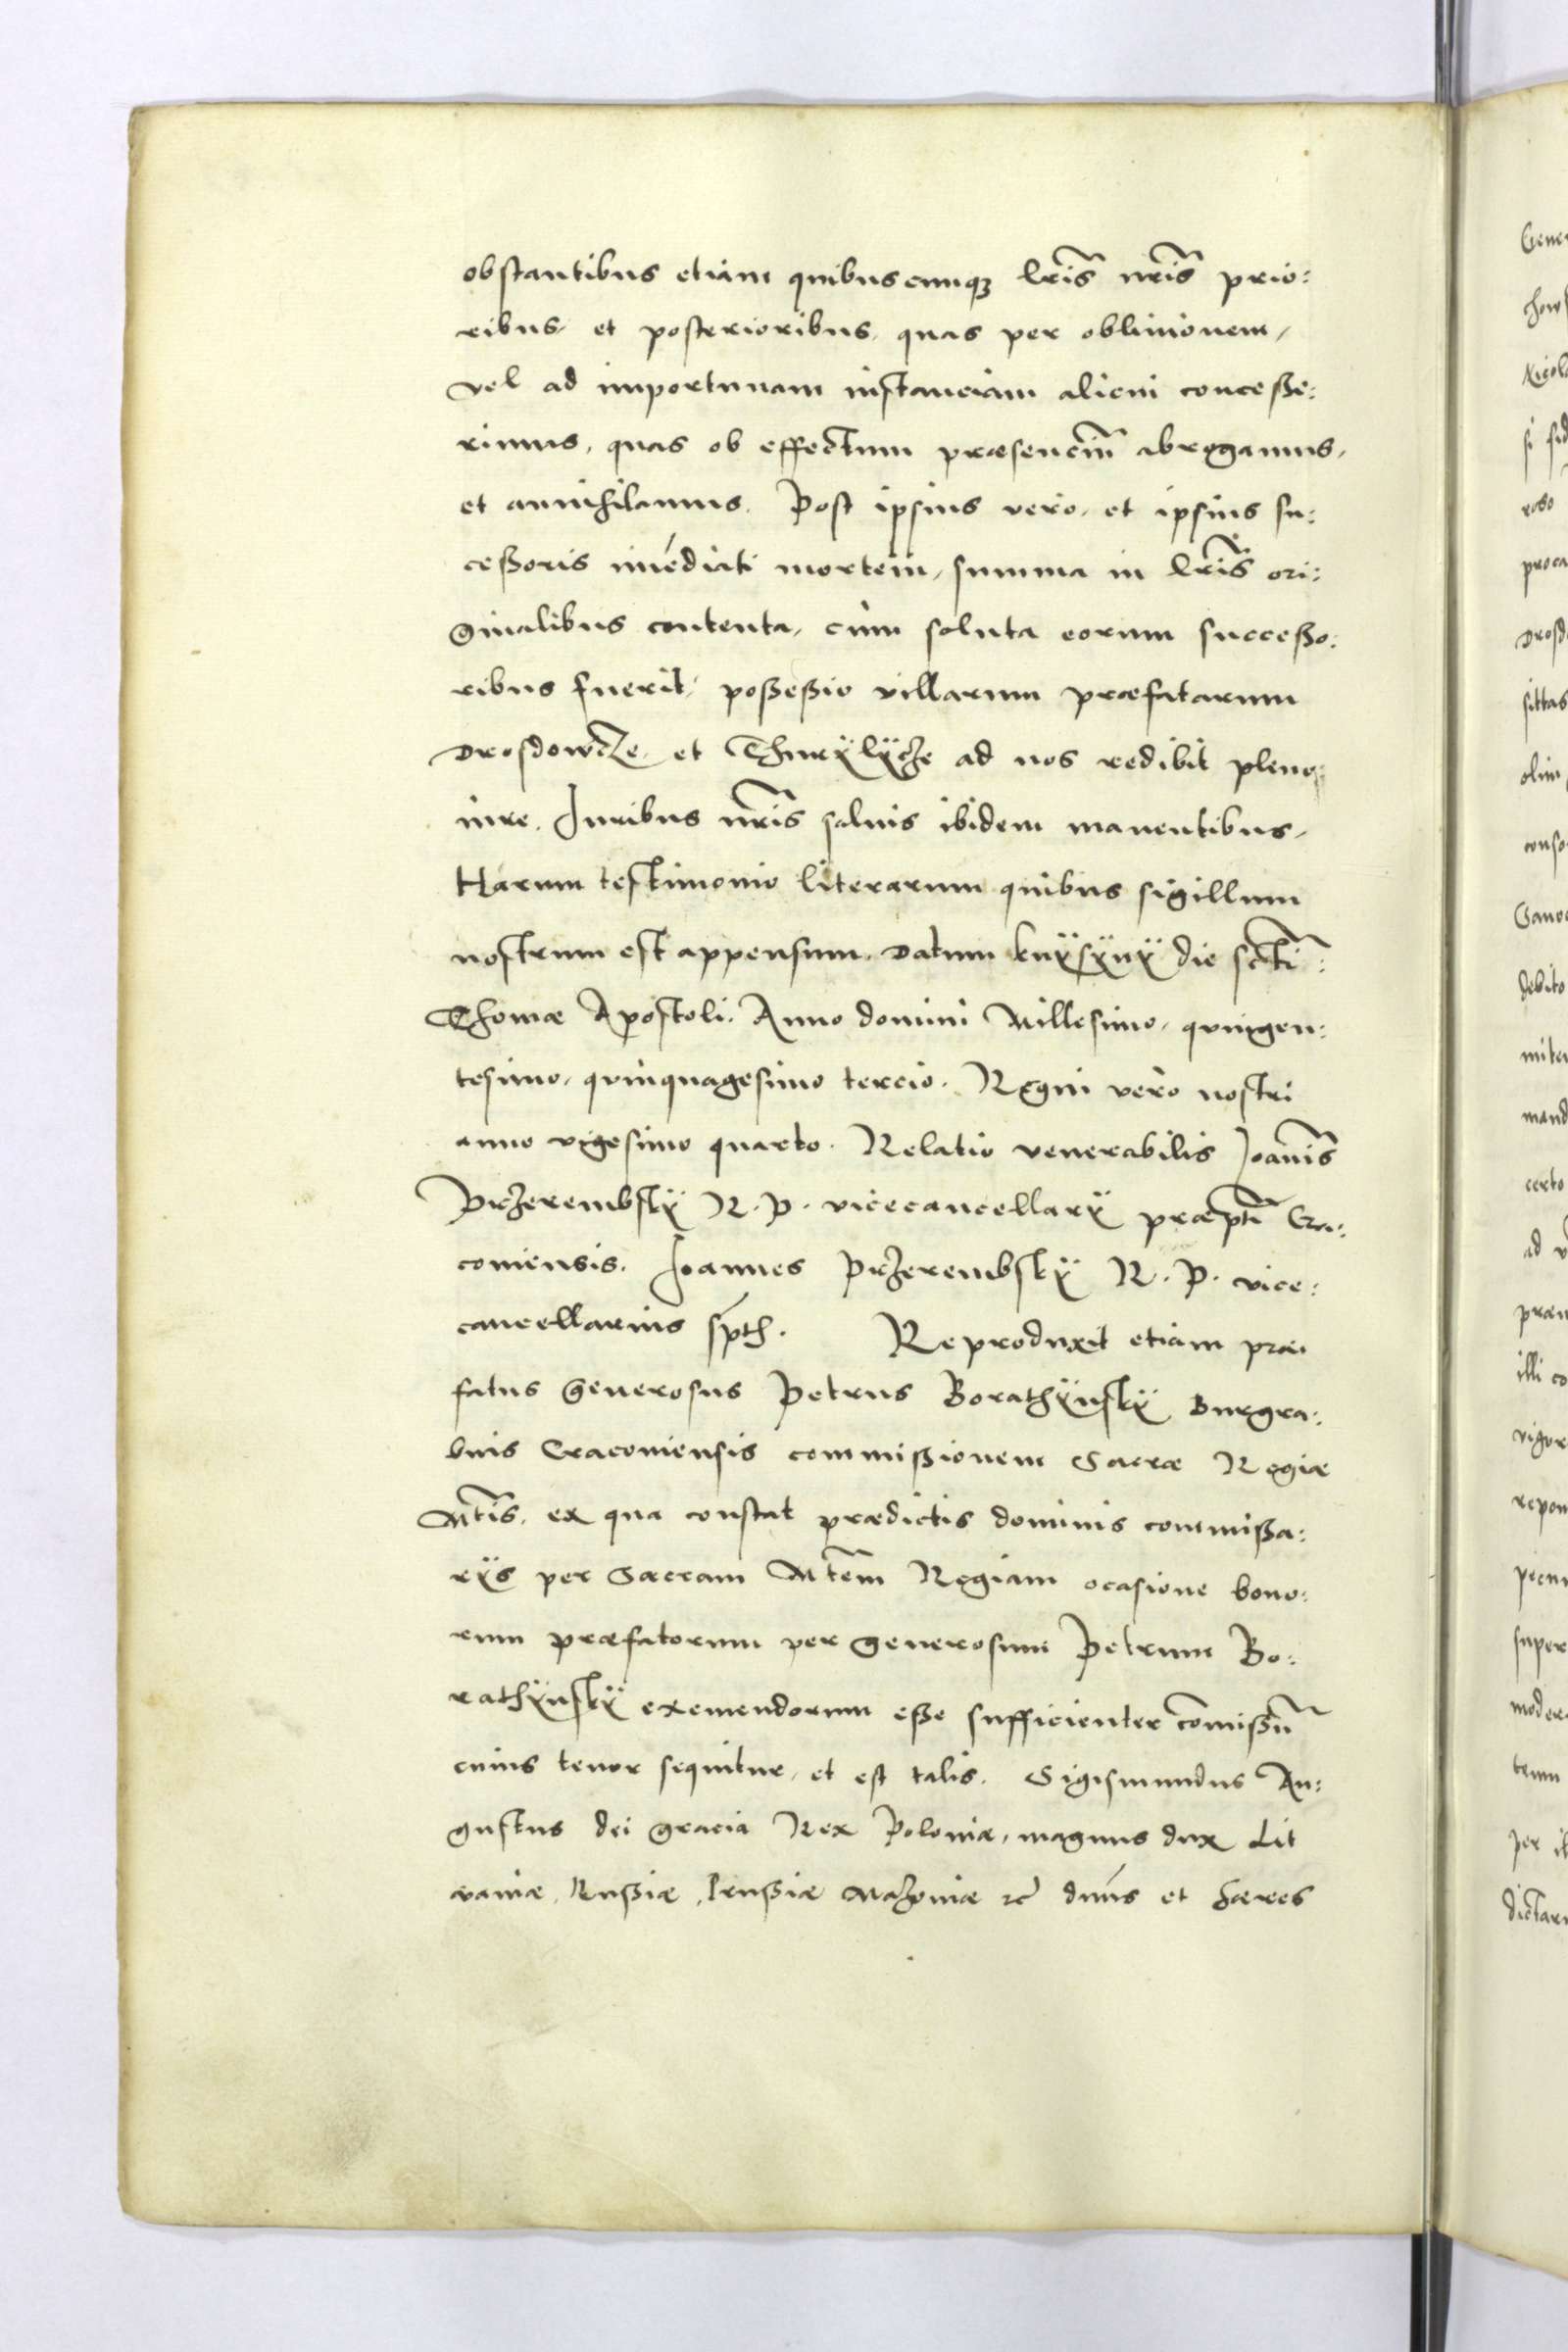 obstantibus etiam quibuscunq3 lr̃is nr̃is prio:
ribus, et posterioribus, quas per obliuionem,
vel ad importunam instanciam alicui conceße:
rimus, quas ob effectum præsencim̃ abrogamus,
et annihilamus. Post ipsius vero, et ipsius su:
ceßoris im̃ediati mortem, summa in lr̃is ori:
ginalibus contenta, cum soluta eorum succeßo:
ribus fuerit, poßeßio villarum præfatarum
Drosdowcze, et Thurÿlÿcze ad nos redibit pleno
iure. Iuribus nr̃is saluis ibidem manentibus,
Harum testimonio literarum quibus sigillum
nostrum est appensum. Datum knÿsÿnÿ die sc̃ti
Thomæ Apostoli. Anno domini Millesimo, quingen:
tesimo, quinquagesimo tercio. Regni vero nostri
anno vigesimo quarto. Relatio venerabilis Ioañis
Przerembskÿ R. P. vicecancellarÿ præptĩ Cra:
couiensis. Ioannes Przerembskÿ R. P. vice:
cancellarius spth. Reproduxit etiam præ
fatus Generosus Petrus Borathÿnskÿ Burgra:
bius Cracouiensis commißionem Sacræ Regiæ
Mtĩs. ex qua constat prædictis dominis commißa:
rÿs per Sacram Mtẽm Regiam ocasione bono:
rum præfatorum per Generosum Petrum Bo:
rathÿnskÿ exemendorum eße sufficienter com̃ißũ
cuius tenor sequitur, et est talis. Sigismundus Au:
gustus dei gracia Rex Poloniæ, magnus dux Lit
vaniæ, Rußiæ, Prußiæ Mazouiæ &c dñus et hæres